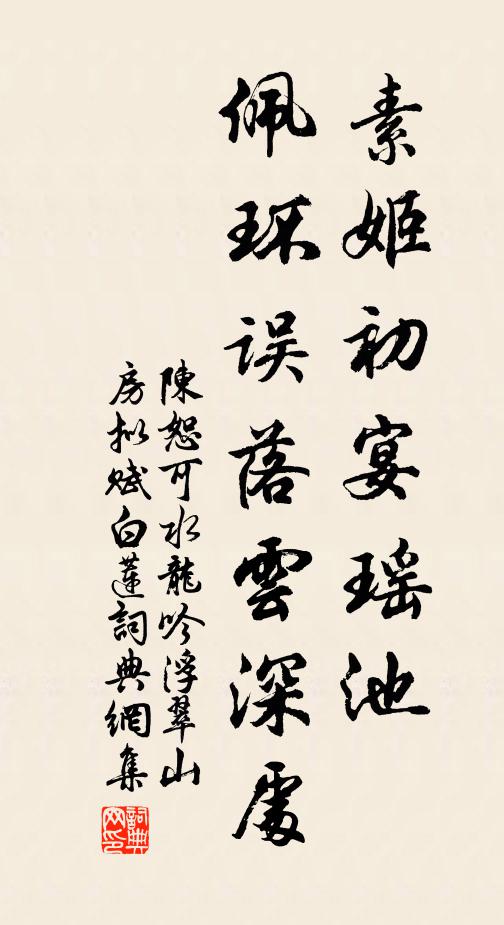 素姬初宴瑶池
佩环误落雲深處
陳恕可水龍吟浮翠山
房拟赋白蓮詞典網集
詞典网印